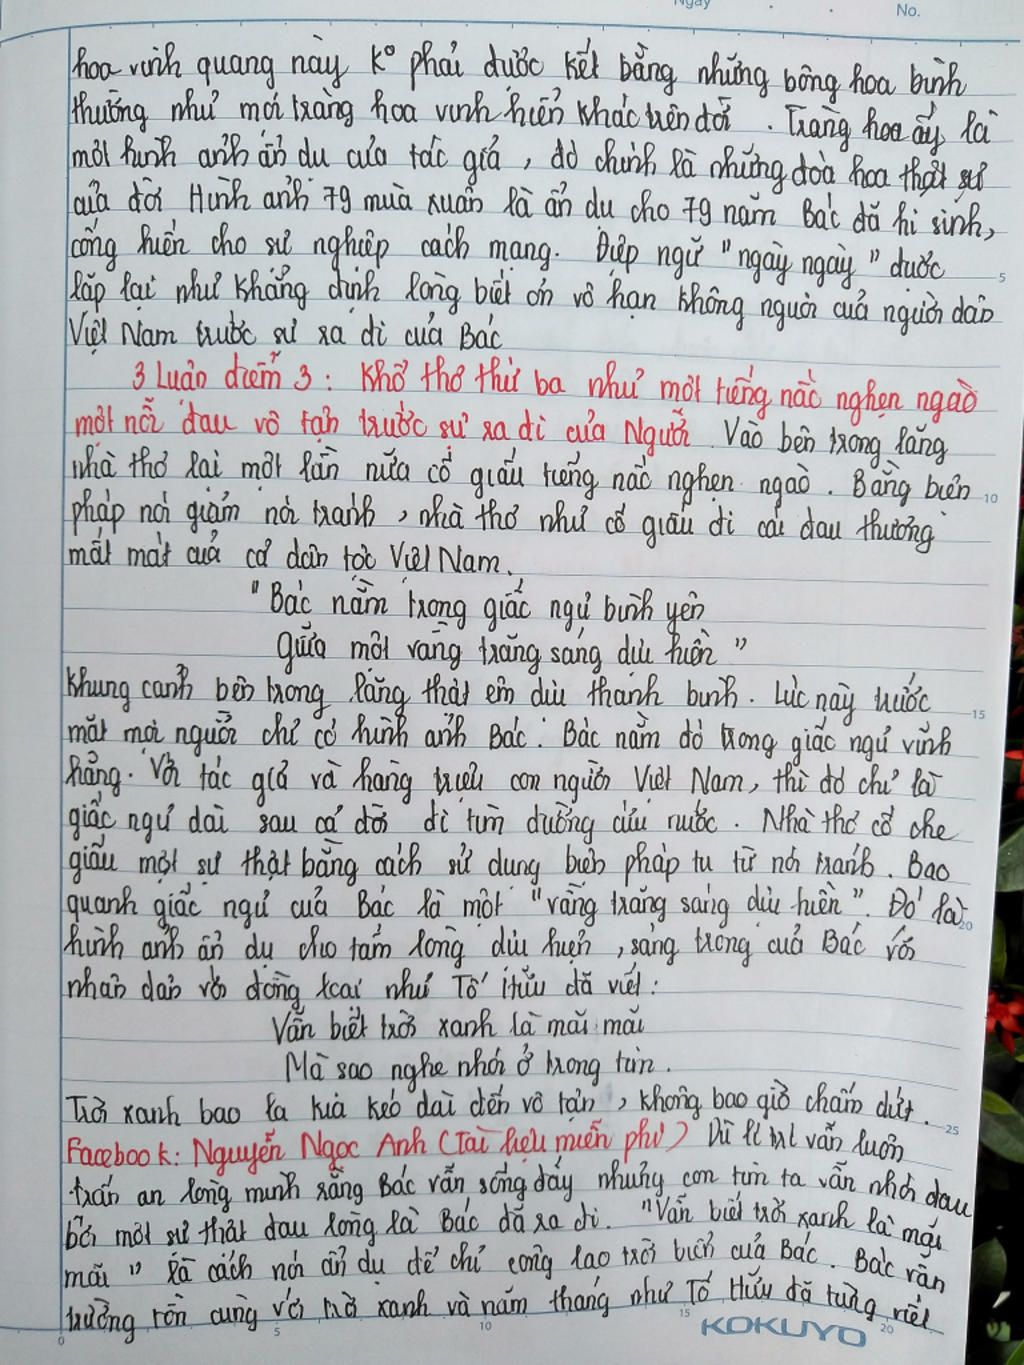 Ngày
No.
hoa vinh quang này K° phải được kết bằng những bông hoa bình
thường như mọi tràng hoa vinh hiển khác trên đời. Tràng hoa ấy là
một hình ảnh ẩn dụ của tác giả, đó chính là những đoá hoa thật sự
của đời Hình ảnh 79 mùa xuân là ẩn dụ cho 79 năm Bác đã hi sinh,
cống hiến cho sự nghiệp cách mạng. Điệp ngữ "ngày ngày" được
5
lặp lại như khẳng định lòng biết ơn vô hạn không nguôi của người dân
Việt Nam trước sự ra đi của Bác
3 Luận điểm 3: Khổ thơ thứ ba như một tiếng nấc nghẹn ngào
một nỗi đau vô tận trước sự ra đi của Người Vào bên trong lăng
nhà thơ lại một lần nữa cố giấu tiếng nấc nghẹn ngào. Bằng biện
10
pháp nói giảm nói tránh, nhà thơ như cố giấu đi cái đau thương
mất mát của cả dân tộc Việt Nam.
"Bác nằm trong giấc ngủ bình yên
Giữa một vầng trăng sáng dịu hiền"
Khung cảnh bên trong lăng thật êm dịu thanh bình. Lúc này trước
15
mắt mọi người chỉ có hình ảnh Bác. Bác nằm đó trong giấc ngủ vĩnh
hằng. Với tác giả và hàng triệu con người Việt Nam, thì đó chỉ là
giấc ngủ dài sau cả đời đi tìm đường cứu nước. Nhà thơ cố che
giấu một sự thật bằng cách sử dụng biện pháp tu từ nói tránh. Bao
quanh giấc ngủ của Bác là một "vầng trăng sáng dịu hiền". Đó là
20
hình ảnh ẩn dụ cho tấm lòng dịu hiện, sáng trong của Bác với
nhân dân với đồng loại như Tố Hữu đã viết:
Vẫn biết trời xanh là mãi mãi
Mà sao nghe nhói ở trong tim.
Trời xanh bao la kia kéo dài đến vô tận, không bao giờ chấm dứt.
25
Facebook: Nguyễn Ngọc Anh (Tài liệu miễn phí) Dù lí trí vẫn luôn
trấn an lòng mình rằng Bác vẫn sống đấy nhưng con tim ta vẫn nhói đau
bởi một sự thật đau lòng là Bác đã ra đi. "Vẫn biết trời xanh là mãi
mãi" là cách nói ẩn dụ để chỉ công lao trời biển của Bác. Bác vẫn
trường tồn cùng với trời xanh và năm tháng như Tố Hữu đã từng viết
0 5 10 15 20
KOKUYO